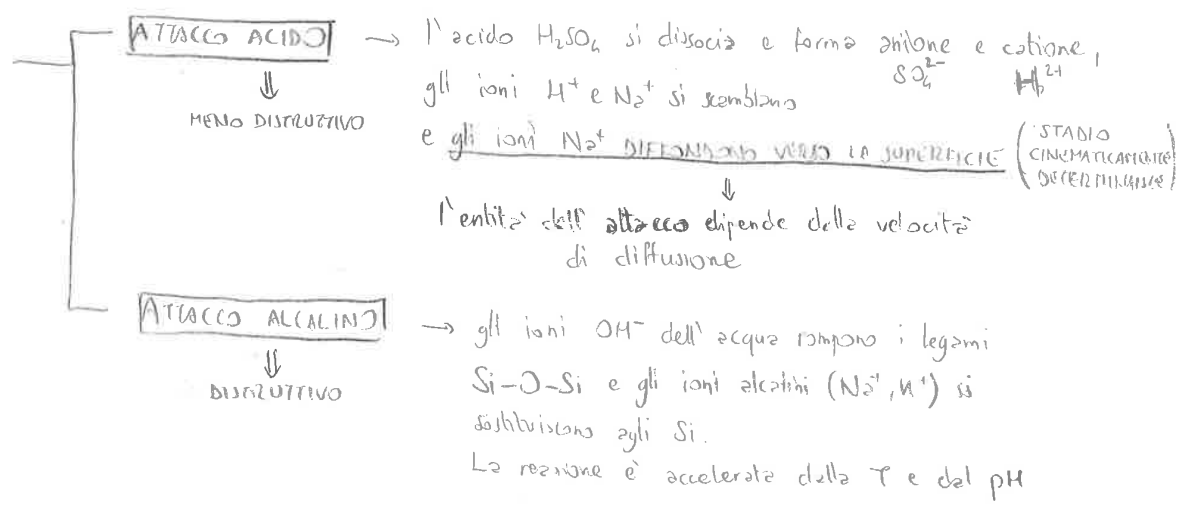 ATTACCO ACIDO → l'acido H₂SO₄ si dissocia e forma anione e catione,
SO₄²⁻ H²⁺
gli ioni H⁺ e Na⁺ si scambiano
MENO DISTRUTTIVO
e gli ioni Na⁺ DIFFONDONO VERSO LA SUPERFICIE (STADIO
CINEMATICAMENTE
DETERMINANTE)
l'entità dell'attacco dipende dalla velocità
di diffusione
ATTACCO ALCALINO → gli ioni OH⁻ dell'acqua rompono i legami
DISTRUTTIVO
Si-O-Si e gli ioni alcalini (Na⁺, K⁺) si
sostituiscono agli Si.
La reazione è accelerata dalla T e dal pH